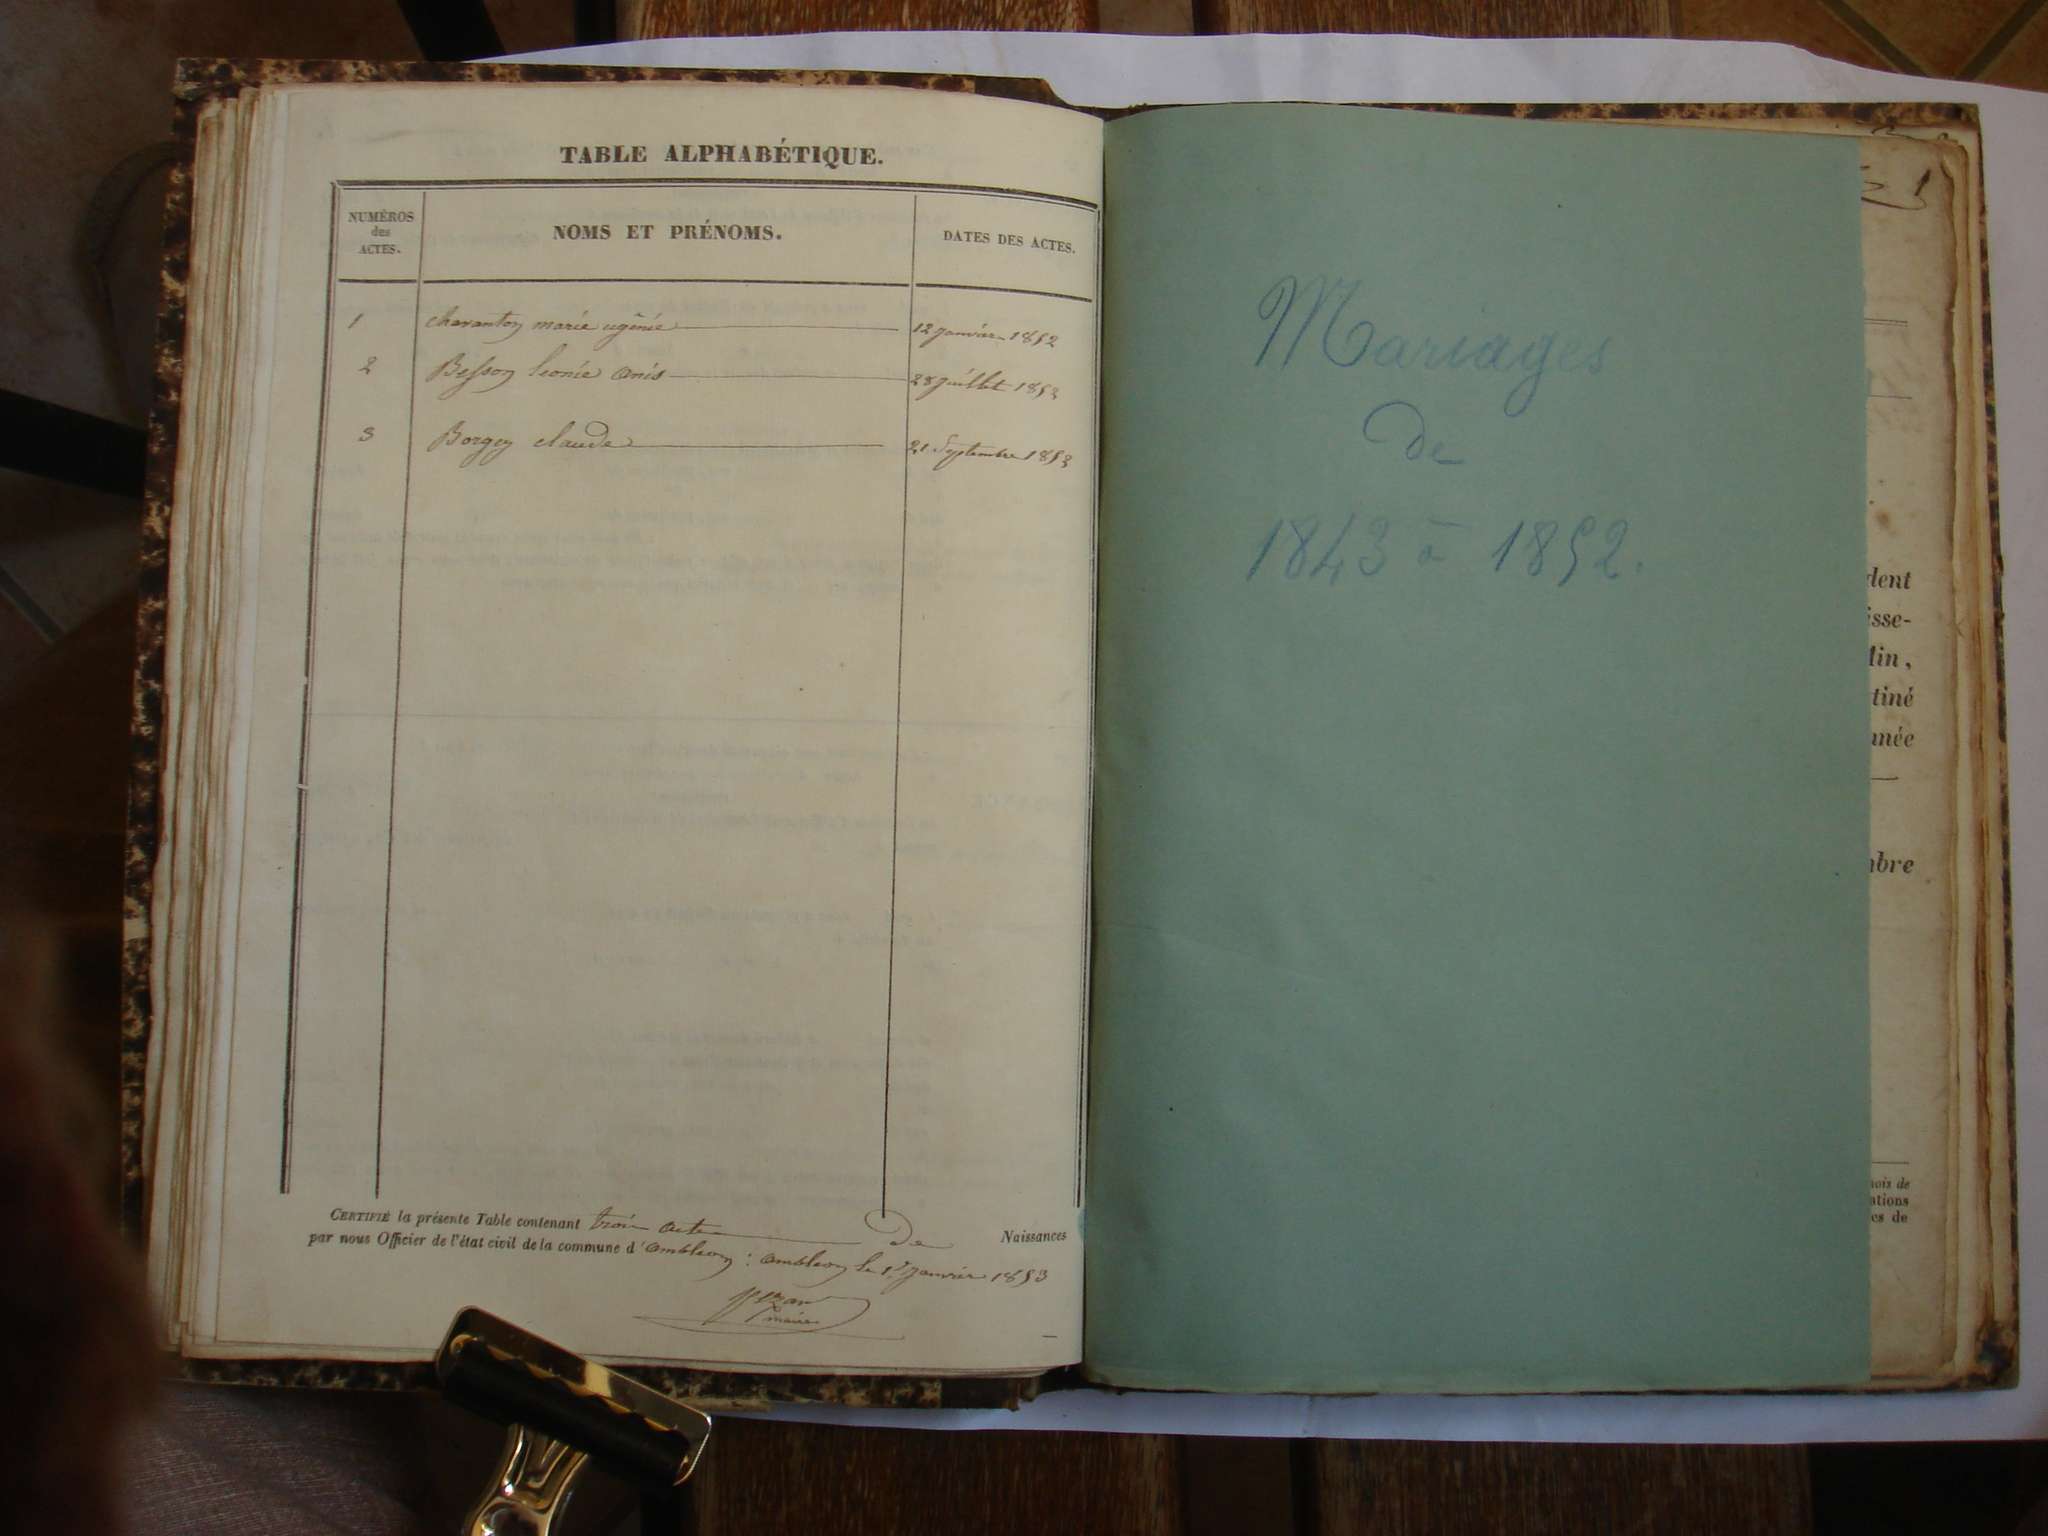 TABLE ALPHABÉTIQUE.
NUMÉROS
des
ACTES.
NOMS ET PRÉNOMS.
DATES DES ACTES.
1 charanton marie ugénie 12 janvier 1852
2 Besson leonie anis 28 juillet 1853
3 Borgey claude 21 Septembre 1853
CERTIFIÉ la présente Table contenant trois acte de Naissances
par nous Officier de l'état civil de la commune d'ambleon : ambleon le 1er janvier 1853
maire
Mariages
de
1843 à 1852.
1
dent
isse-
lin,
tiné
nnée
mbre
nois de
ations
es de